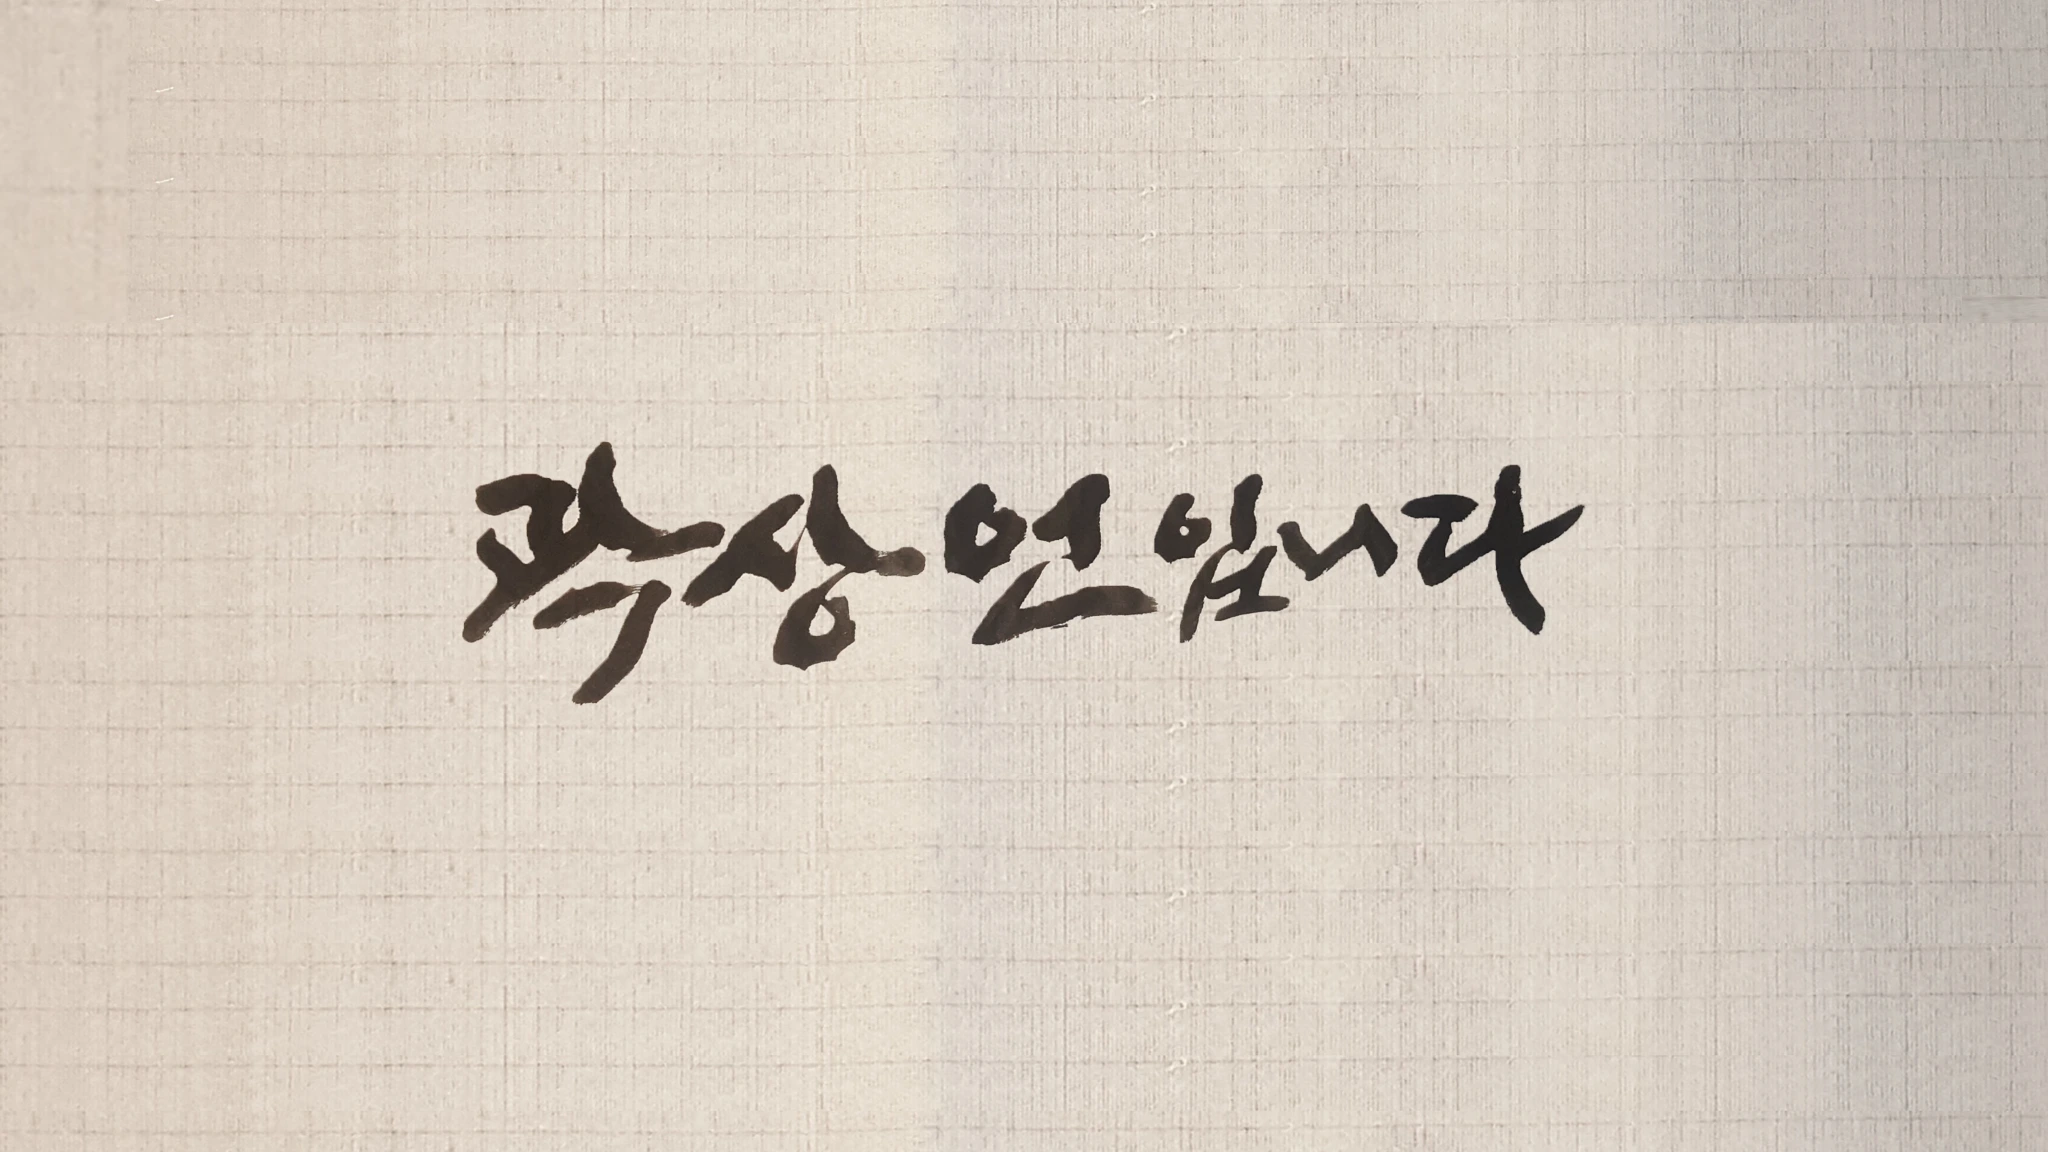 곽상언입니다